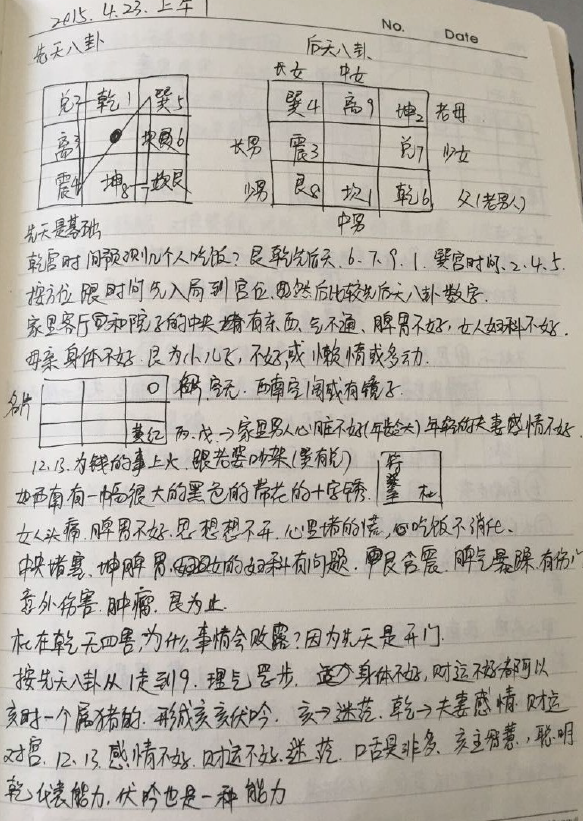 2015.4.23.上午
No. Date
先天八卦 后天八卦
长女 中女
兑2 乾1 巽5 巽4 离9 坤2 老母
离3 坎6 长男 震3 兑7 少女
震4 坤8 艮 少男 艮8 坎1 乾6 父(老男人)
中男
先天是基础
乾宫时间预测几个人吃饭?艮乾先后天.6.7.9.1.巽宫时间.2.4.5.
按方位跟时间先入局到宫位.然后比较先后天八卦数字.
家里客厅和院子的中央堵有东西.气不通.脾胃不好,女人妇科不好.
母亲身体不好.艮为小儿子,不好或懒惰或多动.
名片 空亡.西南空间或有镜子.
丙.戊→家里男人心脏不好(年龄大)年轻的夫妻感情不好.
12.13.为钱的事上火.跟老婆吵架(巽有兑)
如西南有一幅很大的黑色的带花的十字绣. 符 杜
女人头痛.脾胃不好.思想想不开.心里堵的慌,吃饭不消化.
中央堵塞、坤脾胃.女的妇科有问题.艮含震.脾气暴躁.有伤
意外伤害.肿瘤.艮为止.
杜在乾无四害,为什么事情会败露?因为先天是开门.
按先天八卦从1走到9.理气罡步.身体不好,财运不好都可以
亥时一个属猪的.形成亥亥伏吟.亥→迷茫.乾→夫妻感情.财运
对宫.12.13.感情不好.财运不好.迷茫.口舌是非多.亥主智慧,聪明
乾代表能力,伏吟也是一种能力